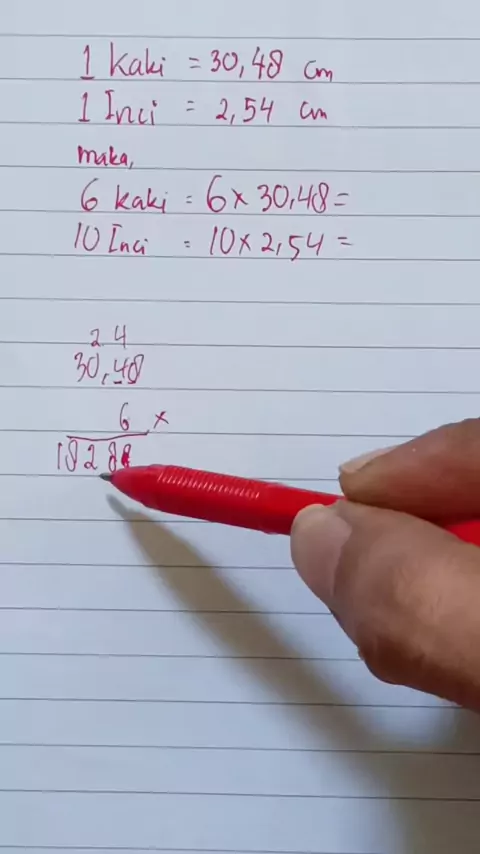 1 Kaki = 30,48 cm
1 Inci = 2,54 cm
maka,
6 kaki = 6 x 30,48 =
10 Inci = 10 x 2,54 =
2 4
30,48
6 x
18288